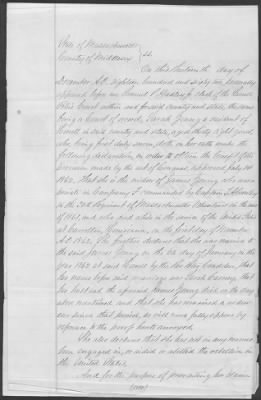 State of Massachusetts
County of Middlesex } SS.
On this tenth day of
December A.D. eighteen hundred and sixty two personally
appeared before me Samuel P. Hadley Jr. clerk of the Police
Court within and for said county and state, the same
being a Court of record, Sarah Young a resident of
Lowell in said county and state, aged thirty eight years,
who being first duly sworn, doth on her oath make the
following declaration, in order to obtain the benefit of the
provision made by the act of Congress approved July 14th
1862. That she is the widow of James Young, who was a
private in Company commanded by Captain
in the 30th Regiment of Massachusetts Volunteers in the war
of 1861, and who died while in the service of the United States
at Carrollton Louisiana, on the first day of November
A.D. 1862. She further declares that she was married to
the said James Young on the day of January in the
year 1842 at said Lowell by the Rev.
that her name before said marriage was Sarah
her husband the aforesaid James Young died on the day
above mentioned and that she has remained a widow
ever since that period, as will more fully appear by
reference to the proof hereto annexed.
She also declares that she has not in any manner
been engaged in, or aided or abetted the rebellion in
the United States.
And for the purpose of presenting her claim
(over)